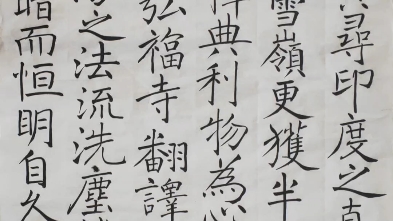 尋印度之真
雪嶺更獲半
釋典利物為心
弘福寺翻譯
之法流洗塵
暗而恒明自久